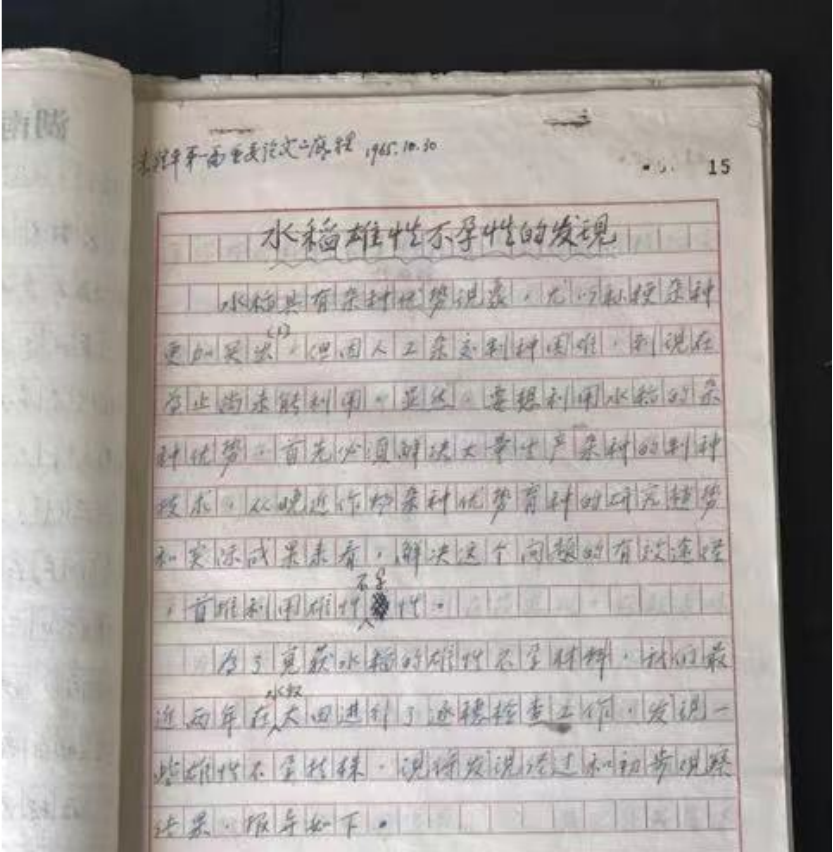 袁隆平第一篇重要论文之底稿 1965.10.30
15
水稻雄性不孕性的发现
水稻具有杂种优势现象,尤以籼粳杂种
更加突出(1),但因人工杂交制种困难,到现在
为止尚未能利用。显然,要想利用水稻的杂
种优势,首先必须解决大量生产杂种的制种
技术。从晚近作物杂种优势育种的研究趋势
和实际成果来看,解决这个问题的有效途径
,首推利用雄性不孕性。
为了觅获水稻的雄性不孕材料,我们最
近两年在水稻大田进行了逐穗检查工作。发现一
些雄性不孕植株,现将发现经过和初步观察
结果,报导如下。